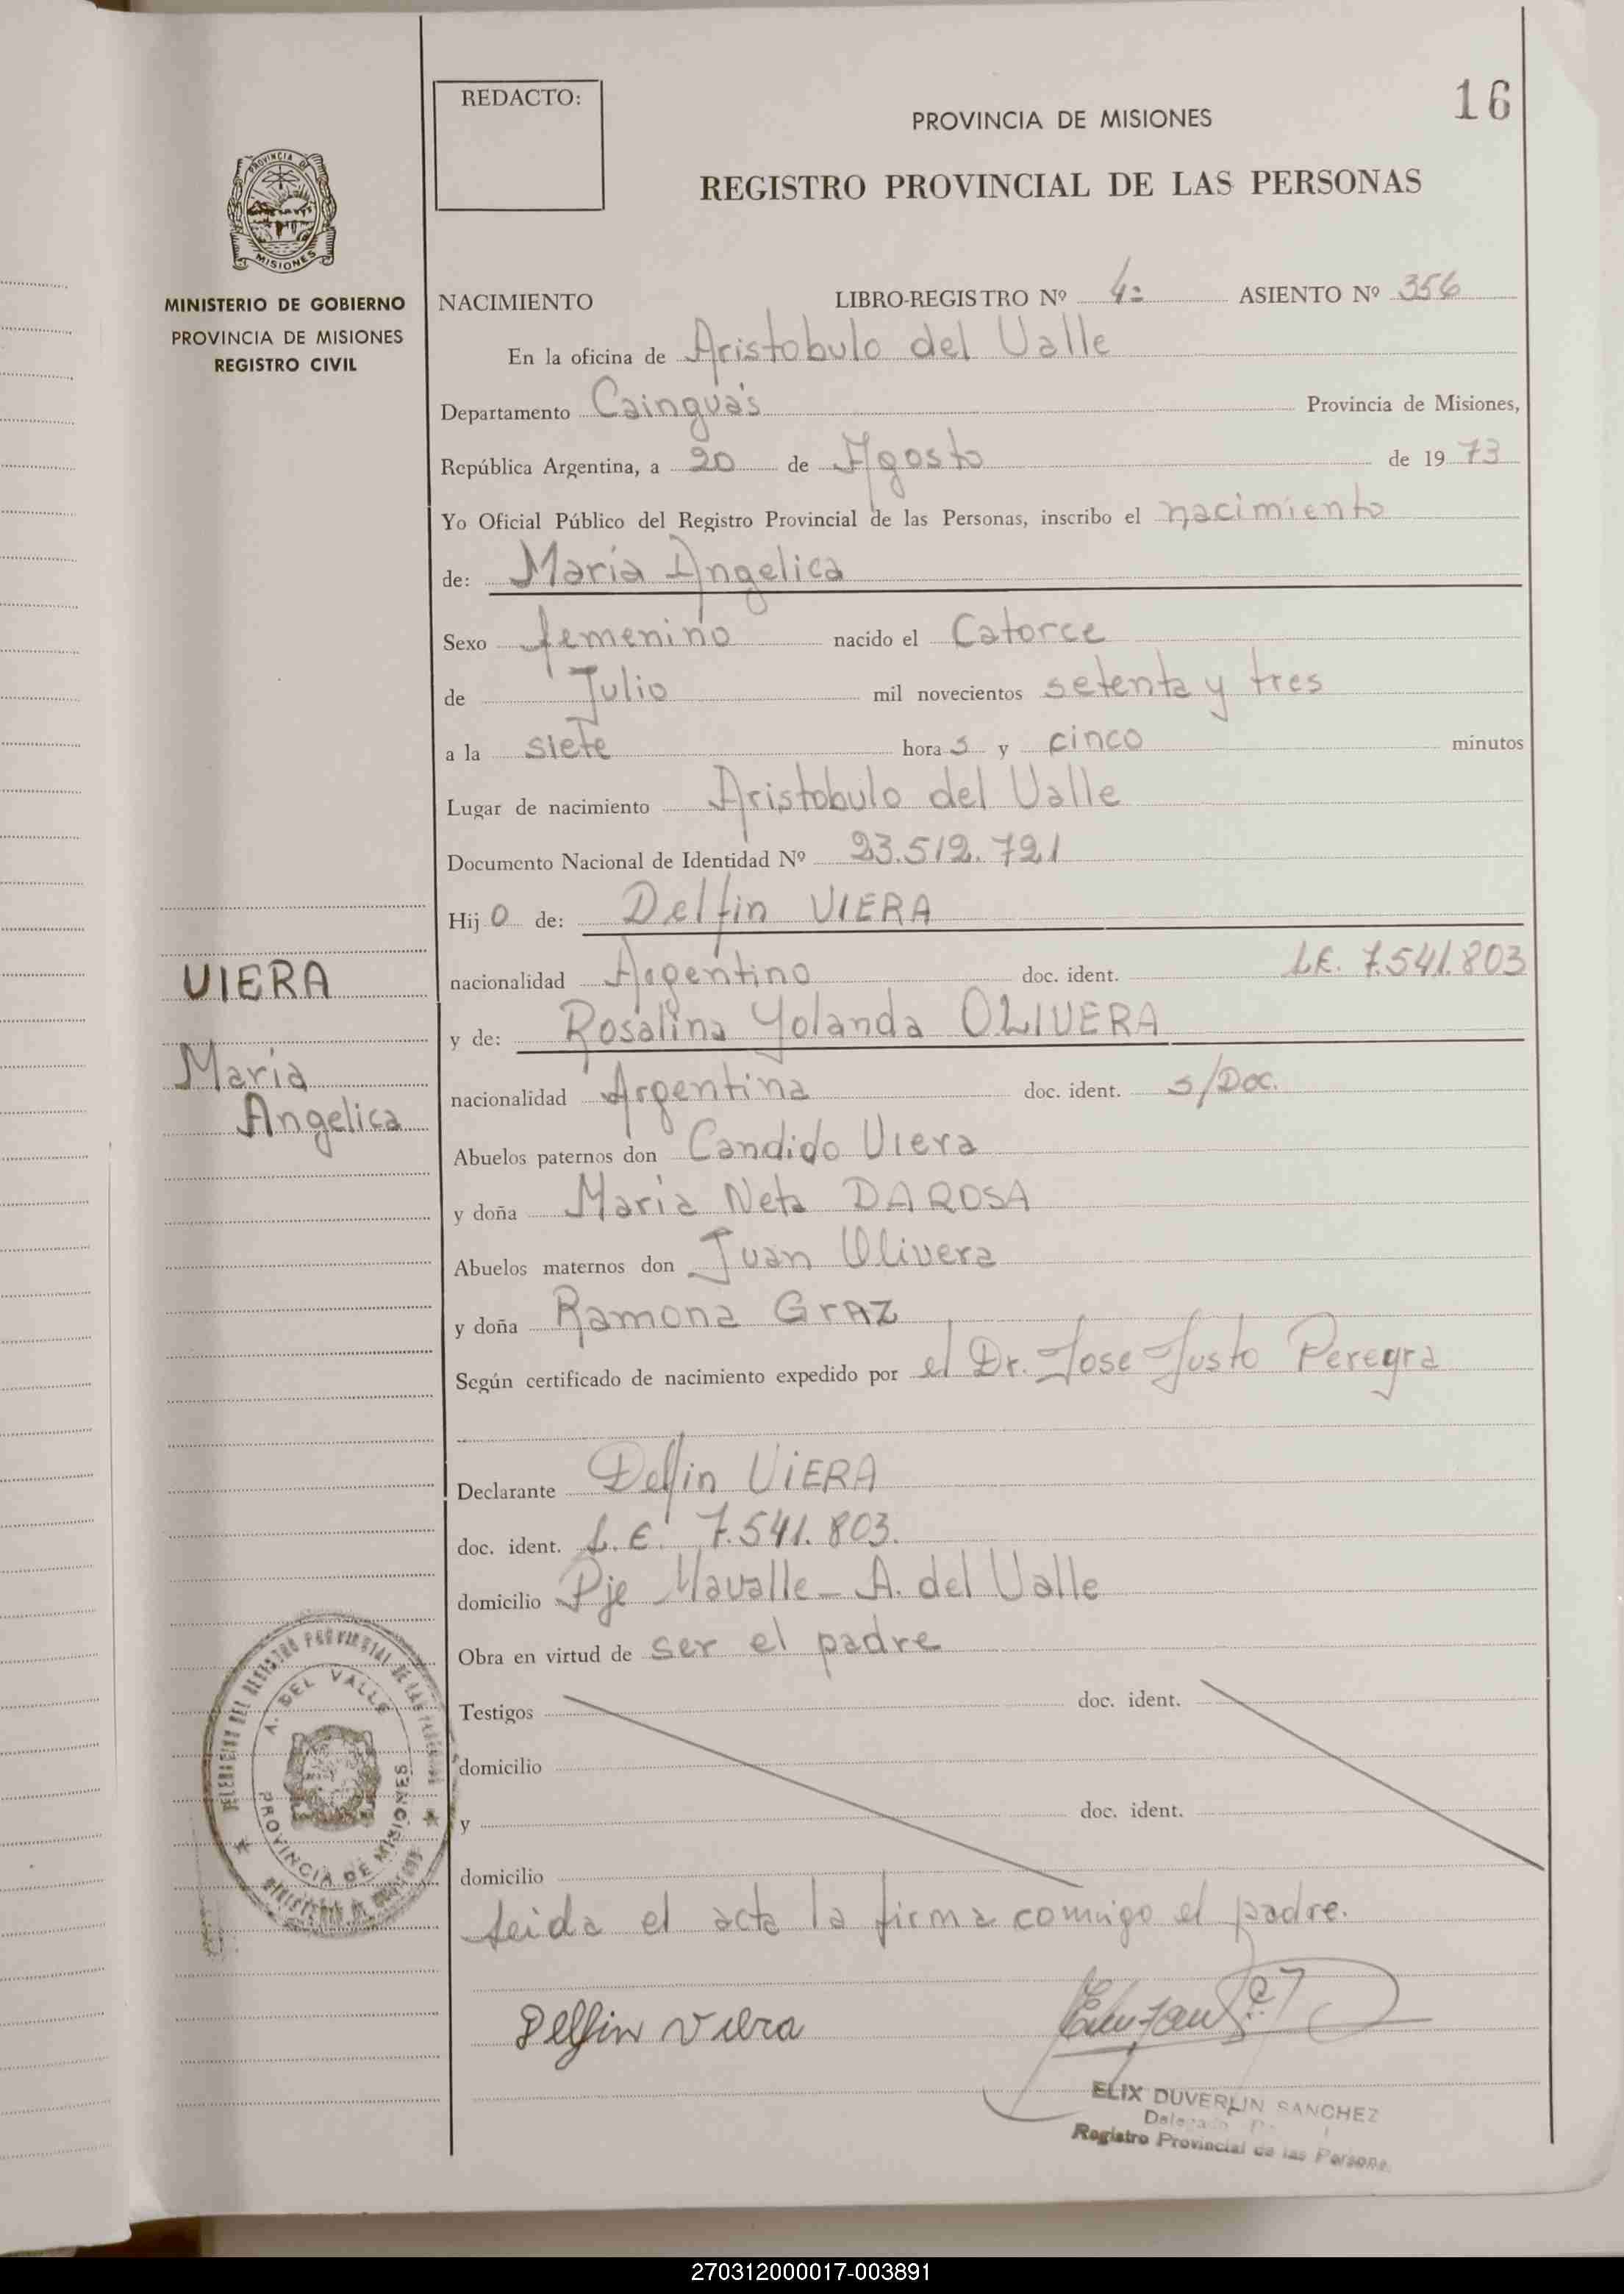 REDACTO:
16
PROVINCIA DE MISIONES
REGISTRO PROVINCIAL DE LAS PERSONAS
PROVINCIA DE
MISIONES
MINISTERIO DE GOBIERNO
PROVINCIA DE MISIONES
REGISTRO CIVIL
NACIMIENTO LIBRO-REGISTRO Nº 4: ASIENTO Nº 356
En la oficina de Aristobulo del Valle
Departamento Cainguás Provincia de Misiones,
República Argentina, a 20 de Agosto de 1973
Yo Oficial Público del Registro Provincial de las Personas, inscribo el nacimiento
de: María Angelica
Sexo femenino nacido el Catorce
de Julio mil novecientos setenta y tres
a la siete hora s y cinco minutos
Lugar de nacimiento Aristobulo del Valle
Documento Nacional de Identidad Nº 23.512.721
Hijo de: Delfin VIERA
nacionalidad Argentino doc. ident. L.E. 7.541.803
y de: Rosalina Yolanda OLIVERA
nacionalidad Argentina doc. ident. s/Doc.
Abuelos paternos don Candido Viera
y doña Maria Neta DAROSA
Abuelos maternos don Juan Olivera
y doña Ramona GrAZ
Según certificado de nacimiento expedido por el Dr. Jose Justo Peregra
Declarante Delfin ViERA
doc. ident. L.E. 7.541.803.
domicilio Pje Mavalle - A. del Valle
Obra en virtud de ser el padre
Testigos doc. ident.
domicilio
y doc. ident.
domicilio
Leida el acta la firma conmigo el padre.
VIERA
Maria
Angelica
A. DEL VALLE
PROVINCIA DE MISIONES
Delfin Viera
ELIX DUVERLIN SANCHEZ
Registro Provincial de las Persona
270312000017-003891